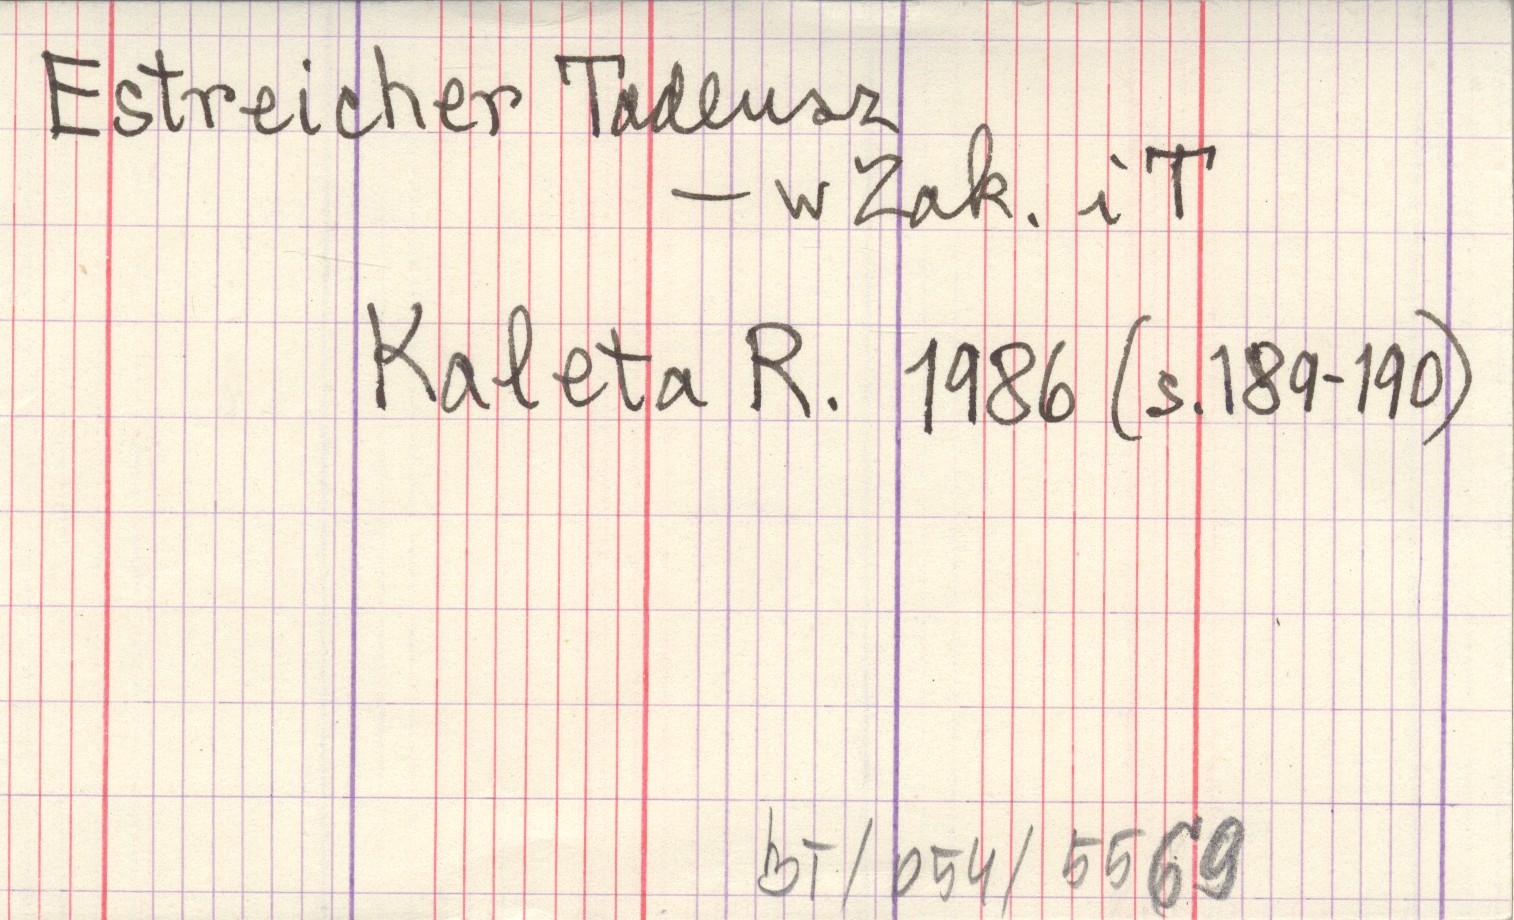 Estreicher Tadeusz
– w Zak. i T
Kaleta R. 1986 (s.189-190)
BT/054/5569